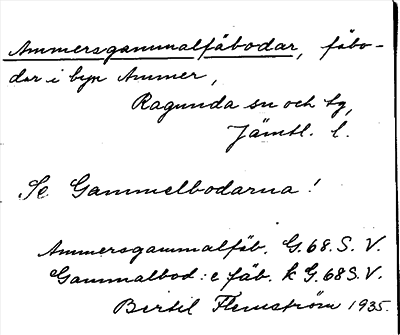 Ammersgammalfäbodar, fäbo-
dar i byn Ammer,
Ragunda sn och tg,
Jämtl. l.
Se Gammelbodarna!
Ammersgammalfäb. G.68.S.V.
Gammalbod:e fäb. k G.68S.V.
Bertil Flemström 1935.